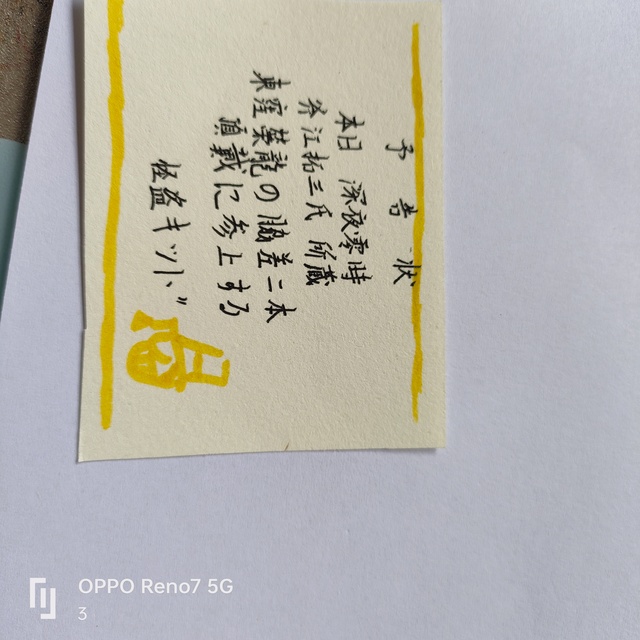 予告状
本日 深夜零時
斧江拓三氏 所蔵
東窪榮龍の脇差二本
頂戴に参上する
怪盗キッド
OPPO Reno7 5G
3